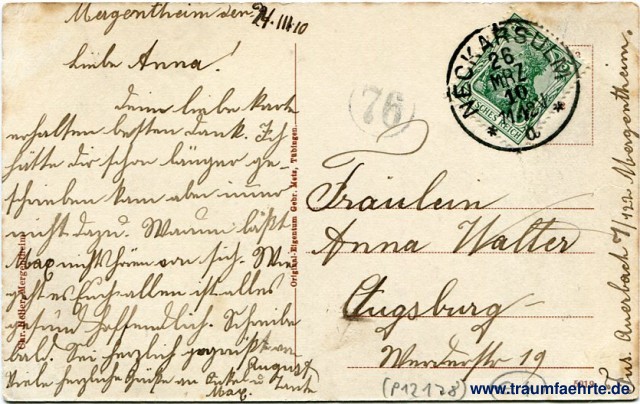 Mergentheim den 24.III.10
Liebe Anna!
Deine liebe Karte
erhalten besten Dank. Ich
hätte dir schon länger ge-
schrieben kam aber immer
nicht dazu. Warum läßt
Max nichts hören von sich. Wie
geht es Euch allen ist alles
gesund hoffendlich. Schreibe
bald. Sei herzlich gegrüßt an
August
Viele herzliche Grüße an Onkel u Tante
Max.
Chr. Heller, Mergentheim.
Original-Eigentum Gebr. Metz, Tübingen.
76
NECKARSULM
26
MRZ
10
11-12 V
*
*
DEUTSCHES REICH
Fräulein
Anna Walter
Augsburg
Werderstr 19
Aus. Auerbach 7/122 Mergentheim.
(P12128)
www.traumfaehrte.de